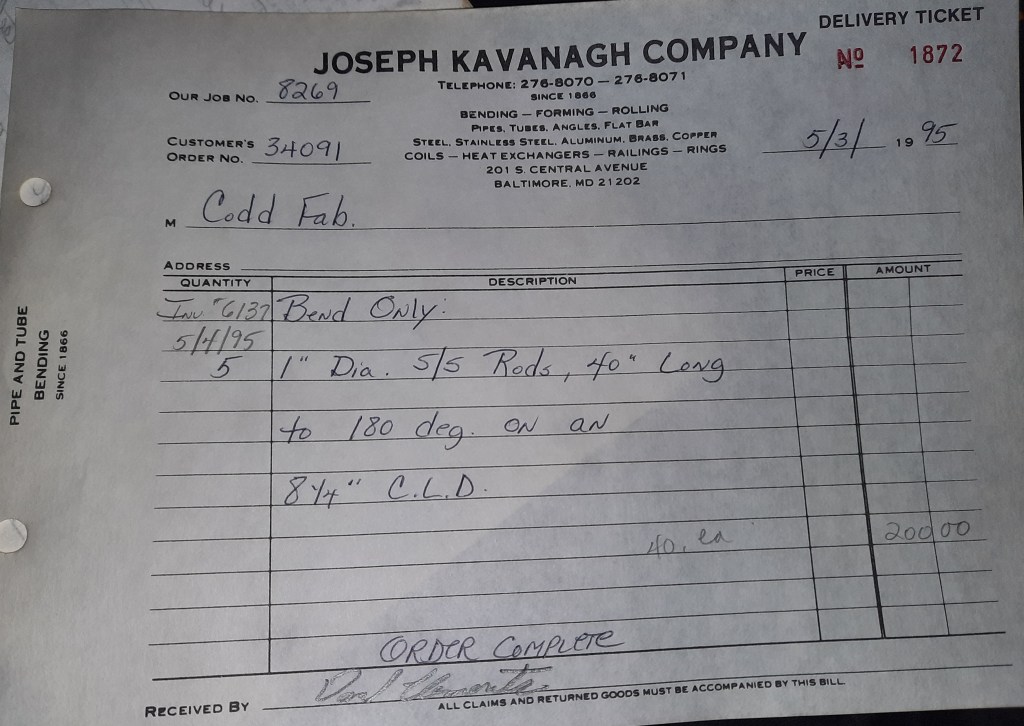 DELIVERY TICKET
JOSEPH KAVANAGH COMPANY
Nº 1872
TELEPHONE: 276-8070 — 276-8071
SINCE 1866
OUR JOB NO. 8269
BENDING — FORMING — ROLLING
PIPES, TUBES, ANGLES, FLAT BAR
STEEL, STAINLESS STEEL, ALUMINUM, BRASS, COPPER
COILS — HEAT EXCHANGERS — RAILINGS — RINGS
201 S. CENTRAL AVENUE
BALTIMORE, MD 21202
CUSTOMER'S
ORDER NO. 34091
5/3/ 19 95
M Codd Fab.
ADDRESS
QUANTITY DESCRIPTION PRICE AMOUNT
Inv #6137 Bend Only:
5/4/95
5 1" Dia. S/S Rods, 40" Long
to 180 deg. on an
8 1/4" C.L.D.
40. ea 200 00
ORDER COMPLETE
RECEIVED BY
ALL CLAIMS AND RETURNED GOODS MUST BE ACCOMPANIED BY THIS BILL
PIPE AND TUBE
BENDING
SINCE 1866